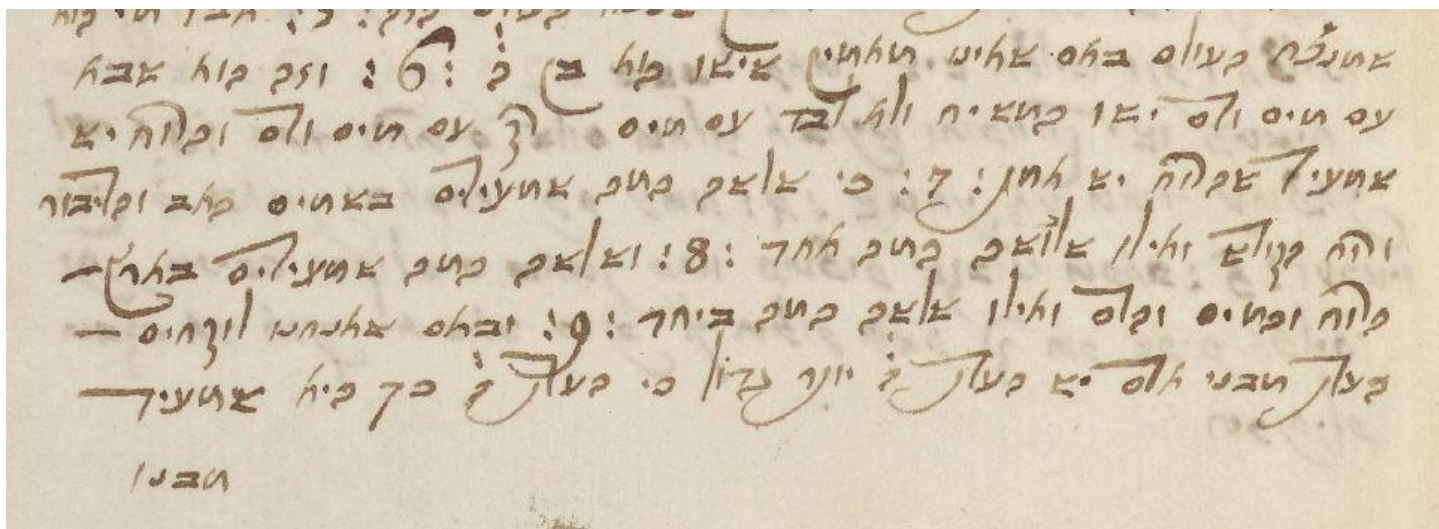 שמנצח העולם באם שאינו מאמין שישו הוא בן ה׳ :6: וזה הוא שבא
עם מים ודם ישו המשיח ולא לבד עם מים רק עם מים ודם והרוח יא
שמעיד שהרוח יא אמת :7: כי שלשה המה שמעידים בשמים האב והדיבור
ורוח הקודש ואילו שלושה המה אחד :8: ושלשה המה שמעידים בארץ –
הרוח והמים והדם ואילו שלשה המה ביחד :9: ובאם שאנחנו לוקחים –
העדות מבני אדם יא העדות ה׳ יותר גדול כי העדות ה׳ כך היא שמעיד –
מבנו